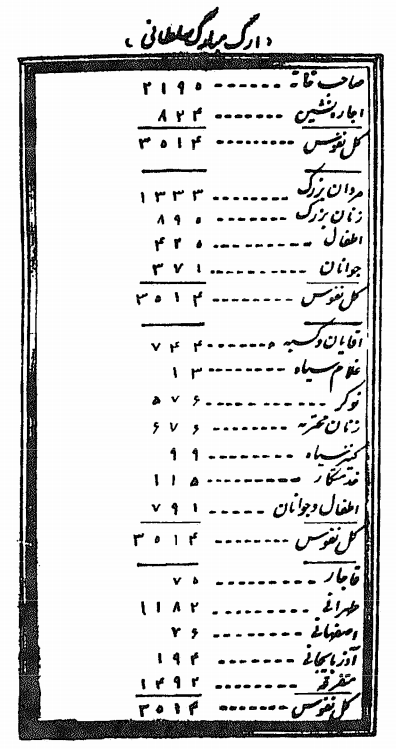 (ارگ مبارک سلطانی)
صاحب خانه ------ ۲۱۹۰
اجاره‌نشین ------- ۸۲۴
کل نفوس -------- ۳۰۱۴
مردان بزرگ -------- ۱۳۳۳
زنان بزرگ -------- ۸۹۰
اطفال ---------- ۴۲۰
جوانان ---------- ۳۷۱
کل نفوس -------- ۳۰۱۴
آقایان و کسبه ------- ۷۴۴
غلام سیاه -------- ۱۳
نوکر ------------ ۵۷۶
زنان محترمه -------- ۶۷۶
کنیز سیاه --------- ۹۹
خدمتکار ---------- ۱۱۵
اطفال و جوانان ----- ۷۹۱
کل نفوس -------- ۳۰۱۴
قاجار ---------- ۷۵
طهرانی --------- ۱۱۸۲
اصفهانی --------
آذربایجانی ------- ۱۹۴
متفرقه --------- ۱۴۹۲
کل نفوس ------- ۳۰۱۴